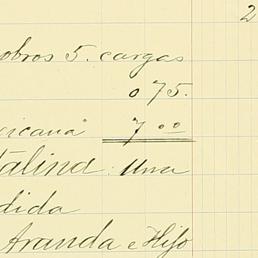 2
obros 5. cargas
0 75.
ricana" 7 00
talina: Una
dida
Aranda e Hijo